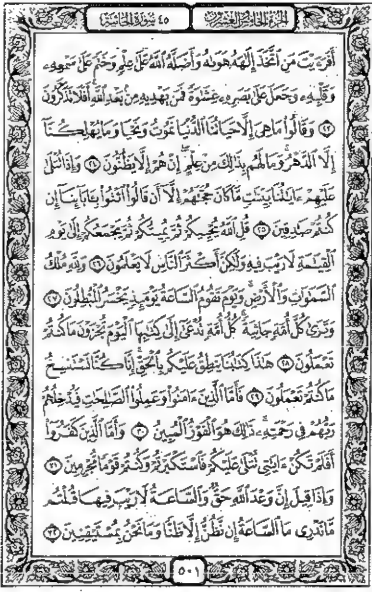 الجزء الخامس والعشرون ٤٥ سورة الجاثية
أَفَرَءَيْتَ مَنِ ٱتَّخَذَ إِلَٰهَهُۥ هَوَىٰهُ وَأَضَلَّهُ ٱللَّهُ عَلَىٰ عِلْمٍ وَخَتَمَ عَلَىٰ سَمْعِهِۦ
وَقَلْبِهِۦ وَجَعَلَ عَلَىٰ بَصَرِهِۦ غِشَٰوَةً فَمَن يَهْدِيهِ مِنۢ بَعْدِ ٱللَّهِ أَفَلَا تَذَكَّرُونَ
٢٣ وَقَالُوا۟ مَا هِىَ إِلَّا حَيَاتُنَا ٱلدُّنْيَا نَمُوتُ وَنَحْيَا وَمَا يُهْلِكُنَآ
إِلَّا ٱلدَّهْرُ وَمَا لَهُم بِذَٰلِكَ مِنْ عِلْمٍ إِنْ هُمْ إِلَّا يَظُنُّونَ ٢٤ وَإِذَا تُتْلَىٰ
عَلَيْهِمْ ءَايَٰتُنَا بَيِّنَٰتٍ مَّا كَانَ حُجَّتَهُمْ إِلَّآ أَن قَالُوا۟ ٱئْتُوا۟ بِـَٔابَآئِنَآ إِن
كُنتُمْ صَٰدِقِينَ ٢٥ قُلِ ٱللَّهُ يُحْيِيكُمْ ثُمَّ يُمِيتُكُمْ ثُمَّ يَجْمَعُكُمْ إِلَىٰ يَوْمِ
ٱلْقِيَٰمَةِ لَا رَيْبَ فِيهِ وَلَٰكِنَّ أَكْثَرَ ٱلنَّاسِ لَا يَعْلَمُونَ ٢٦ وَلِلَّهِ مُلْكُ
ٱلسَّمَٰوَٰتِ وَٱلْأَرْضِ وَيَوْمَ تَقُومُ ٱلسَّاعَةُ يَوْمَئِذٍ يَخْسَرُ ٱلْمُبْطِلُونَ ٢٧
وَتَرَىٰ كُلَّ أُمَّةٍ جَاثِيَةً كُلُّ أُمَّةٍ تُدْعَىٰٓ إِلَىٰ كِتَٰبِهَا ٱلْيَوْمَ تُجْزَوْنَ مَا كُنتُمْ
تَعْمَلُونَ ٢٨ هَٰذَا كِتَٰبُنَا يَنطِقُ عَلَيْكُم بِٱلْحَقِّ إِنَّا كُنَّا نَسْتَنسِخُ
مَا كُنتُمْ تَعْمَلُونَ ٢٩ فَأَمَّا ٱلَّذِينَ ءَامَنُوا۟ وَعَمِلُوا۟ ٱلصَّٰلِحَٰتِ فَيُدْخِلُهُمْ
رَبُّهُمْ فِى رَحْمَتِهِۦ ذَٰلِكَ هُوَ ٱلْفَوْزُ ٱلْمُبِينُ ٣٠ وَأَمَّا ٱلَّذِينَ كَفَرُوٓا۟
أَفَلَمْ تَكُنْ ءَايَٰتِى تُتْلَىٰ عَلَيْكُمْ فَٱسْتَكْبَرْتُمْ وَكُنتُمْ قَوْمًا مُّجْرِمِينَ ٣١
وَإِذَا قِيلَ إِنَّ وَعْدَ ٱللَّهِ حَقٌّ وَٱلسَّاعَةُ لَا رَيْبَ فِيهَا قُلْتُم
مَّا نَدْرِى مَا ٱلسَّاعَةُ إِن نَّظُنُّ إِلَّا ظَنًّا وَمَا نَحْنُ بِمُسْتَيْقِنِينَ ٣٢
٥٠١